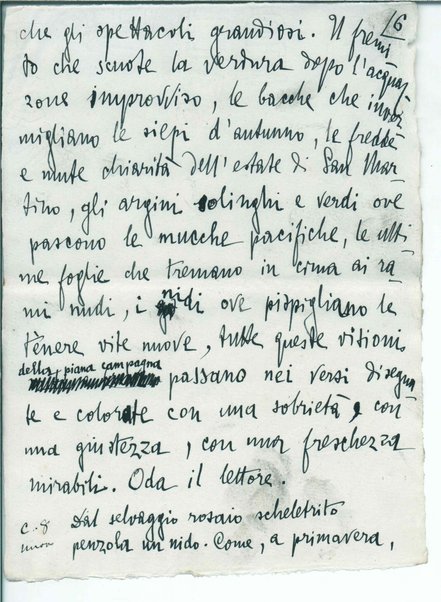 16
che gli spettacoli grandiosi. Il fremi
to che scuote la verdura dopo l'acquaz
zone improvviso, le bacche che inver
migliano le siepi d'autunno, le fredde
e mute chiarità dell'estate di San Mar-
tino, gli argini solinghi e verdi ove
pascono le mucche pacifiche, le ulti
me foglie che tremano in cima ai ra-
mi nudi, i nidi ove pispigliano le
tènere vite nuove, tutte queste visioni
della piana campagna
passano nei versi disegna
te e colorate con una sobrietà, con
una giustezza, con una freschezza
mirabili. Oda il lettore.
c. 8 Dal selvaggio rosaio scheletrito
penzola un nido. Come, a primavera,